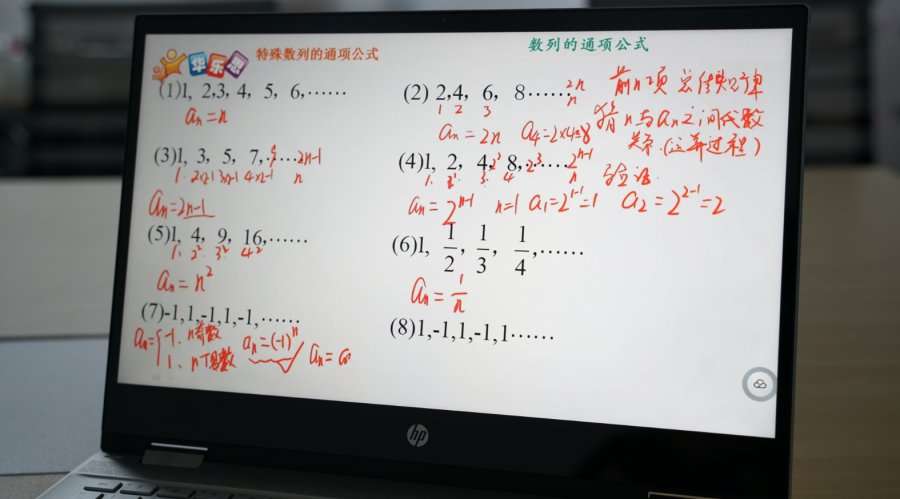 华乐思
特殊数列的通项公式
数列的通项公式
(1)1, 2,3, 4, 5, 6,……
an=n
(2) 2,4, 6, 8…… 2n
1 2 3 n
an=2n a4=2×4=8
前n项 总结规律
n与an之间代数
关系.(运算过程)
(3)1, 3, 5, 7, 9……2n-1
1. 2×2-1 3×2-1 4×2-1 n
an=2n-1
(4)1, 2, 4, 8,……2^(n-1)
验证.
an=2^(n-1) n=1 a1=2^(1-1)=1 a2=2^(2-1)=2
(5)1, 4, 9, 16,……
1. 2² 3² 4²
an=n²
(6)1, 1/2, 1/3, 1/4,……
an=1/n
(7)-1,1,-1,1,-1,……
an={-1. n奇数
1. n偶数
an=(-1)^n
an=
(8)1,-1,1,-1,1……
hp